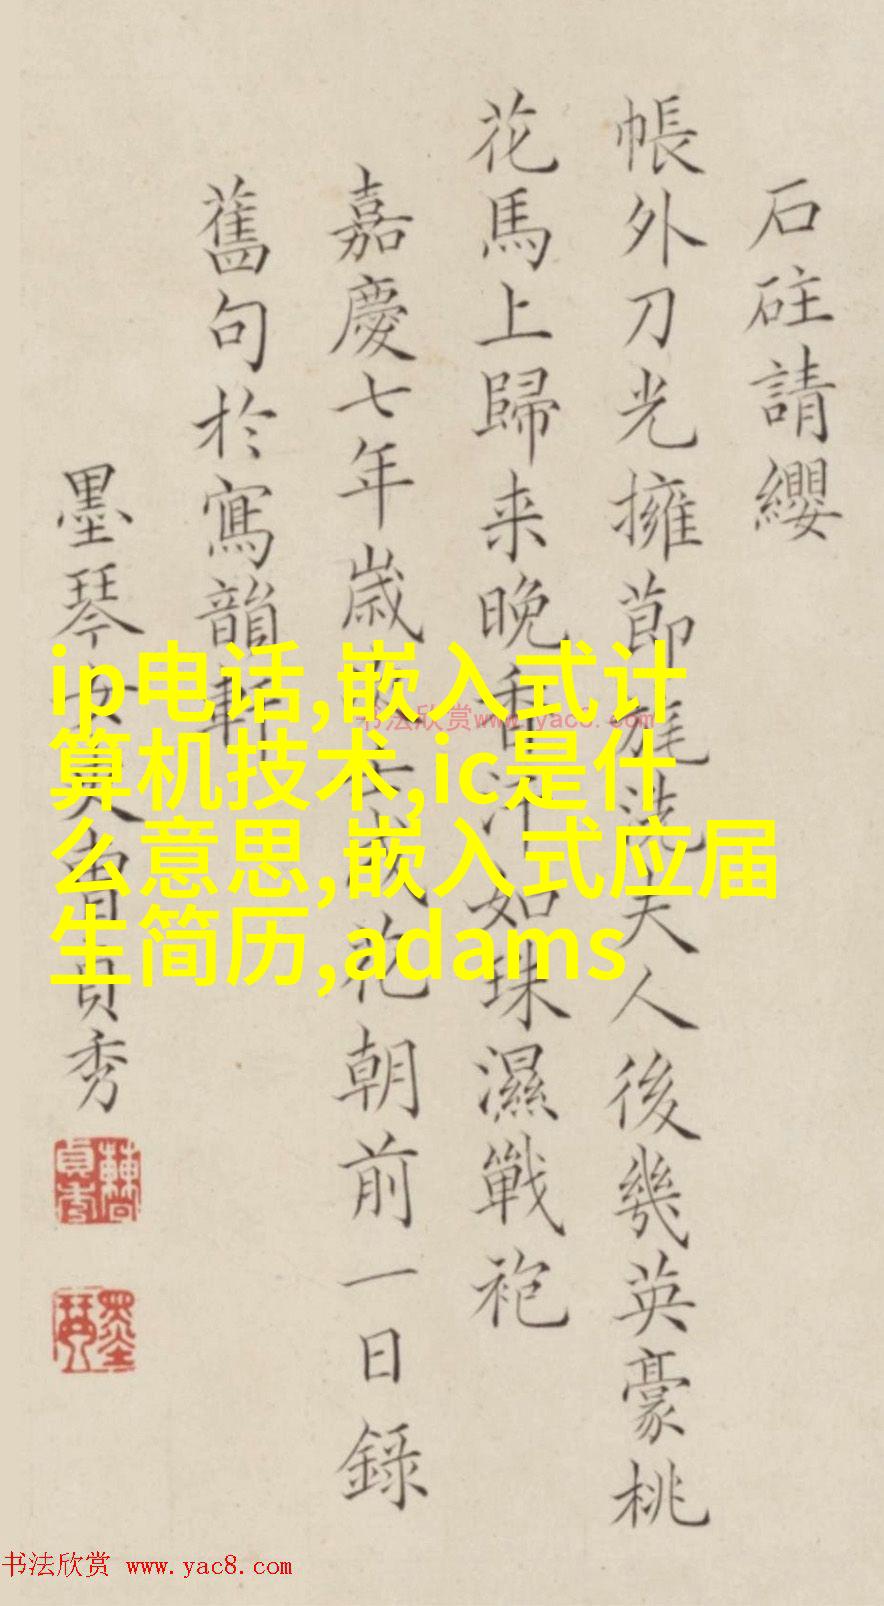 石砫請纓
帳外刀光擁節旄洗夫人後幾英豪桃
花馬上歸来晚香汗如珠濕戰袍
嘉慶七年歲壬戌花朝前一日錄
舊句於寫韻軒
墨琴女史曹貞秀
墨琴
ip电话,嵌入式计
算机技术,ic是什
么意思,嵌入式应届
生简历,adams
书法欣赏www.yac8.com
书法欣赏 www.yac8.com